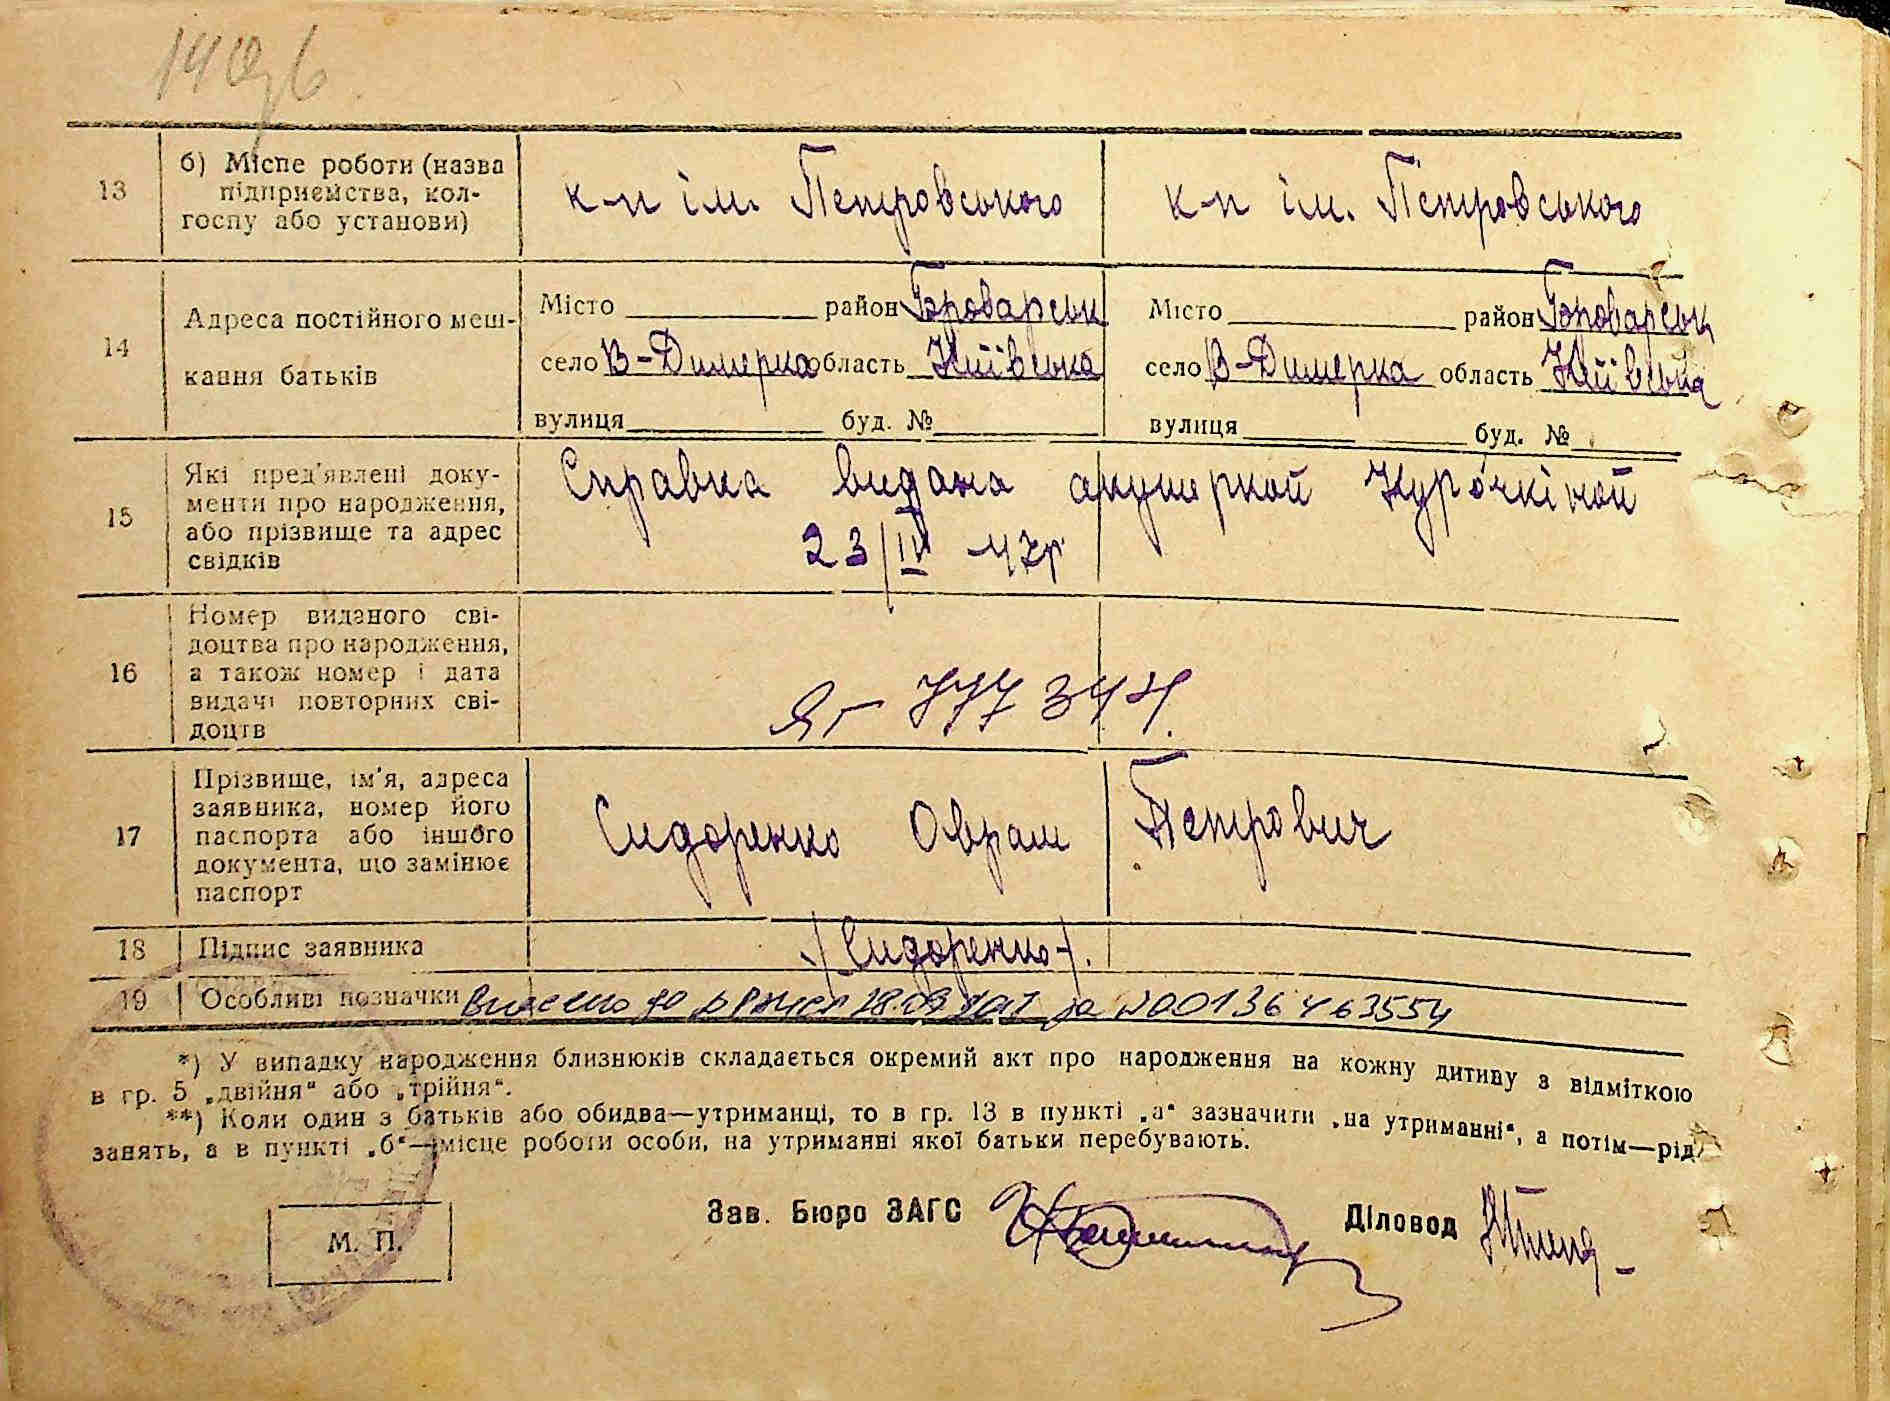 140
13
б) Місце роботи (назва
підприємства, кол-
госпу або установи)
к-п ім. Петровського
к-п ім. Петровського
14
Адреса постійного меш-
кання батьків
Місто район Броварськ
село В-Димерка область Київська
вулиця буд. №
Місто район Броварськ
село В-Димерка область Київська
вулиця буд. №
15
Які пред'явлені доку-
менти про народження,
або прізвище та адрес
свідків
Справка видана акушеркой Курочкіной
23/IV 47р
16
Номер виданого сві-
доцтва про народження,
а також номер і дата
видачі повторних сві-
доцтв
ЯГ 777344.
17
Прізвище, ім'я, адреса
заявника, номер його
паспорта або іншого
документа, що замінює
паспорт
Сидоренко Оврам Петрович
18
Підпис заявника
/Сидоренко/.
19
Особливі позначки Внесено до за N00136463554
*) У випадку народження близнюків складається окремий акт про народження на кожну дитину з відміткою
в гр. 5 „двійня“ або „трійня“.
**) Коли один з батьків або обидва—утриманці, то в гр. 13 в пункті „а“ зазначити „на утриманні“, а потім—рід
занять, а в пункті „б“—місце роботи особи, на утриманні якої батьки перебувають.
М. П.
Зав. Бюро ЗАГС
Діловод